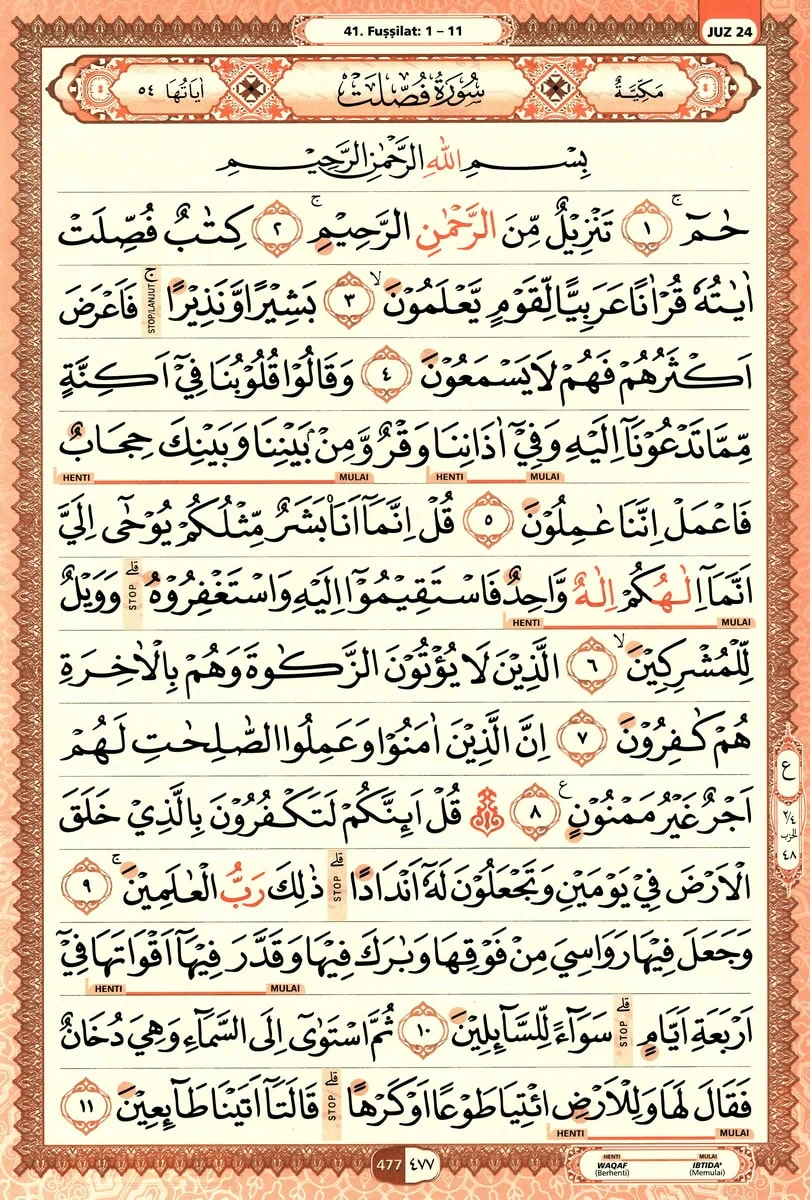 41. Fuṣṣilat: 1 – 11
JUZ 24
مَكِّيَّةٌ
سُوْرَةُ فُصِّلَتْ
اٰيَاتُهَا ٥٤
بِسْمِ اللّٰهِ الرَّحْمٰنِ الرَّحِيْمِ
حٰمۤ ۚ ١ تَنْزِيْلٌ مِّنَ الرَّحْمٰنِ الرَّحِيْمِ ۚ ٢ كِتٰبٌ فُصِّلَتْ
اٰيٰتُهٗ قُرْاٰنًا عَرَبِيًّا لِّقَوْمٍ يَّعْلَمُوْنَ ۙ ٣ بَشِيْرًا وَّنَذِيْرًا ۚ STOP/LANJUT فَاَعْرَضَ
اَكْثَرُهُمْ فَهُمْ لَا يَسْمَعُوْنَ ٤ وَقَالُوْا قُلُوْبُنَا فِيْٓ اَكِنَّةٍ
مِّمَّا تَدْعُوْنَآ اِلَيْهِ وَفِيْٓ اٰذَانِنَا وَقْرٌ وَّمِنْۢ بَيْنِنَا وَبَيْنِكَ حِجَابٌ
MULAI HENTI MULAI HENTI
فَاعْمَلْ اِنَّنَا عٰمِلُوْنَ ٥ قُلْ اِنَّمَآ اَنَا۠ بَشَرٌ مِّثْلُكُمْ يُوْحٰىٓ اِلَيَّ
اَنَّمَآ اِلٰهُكُمْ اِلٰهٌ وَّاحِدٌ فَاسْتَقِيْمُوْٓا اِلَيْهِ وَاسْتَغْفِرُوْهُ ۗ STOP وَوَيْلٌ
MULAI HENTI
لِّلْمُشْرِكِيْنَ ۙ ٦ الَّذِيْنَ لَا يُؤْتُوْنَ الزَّكٰوةَ وَهُمْ بِالْاٰخِرَةِ
هُمْ كٰفِرُوْنَ ٧ اِنَّ الَّذِيْنَ اٰمَنُوْا وَعَمِلُوا الصّٰلِحٰتِ لَهُمْ
اَجْرٌ غَيْرُ مَمْنُوْنٍ ع ٨ قُلْ اَىِٕنَّكُمْ لَتَكْفُرُوْنَ بِالَّذِيْ خَلَقَ
الْاَرْضَ فِيْ يَوْمَيْنِ وَتَجْعَلُوْنَ لَهٗٓ اَنْدَادًا ۗ STOP ذٰلِكَ رَبُّ الْعٰلَمِيْنَ ۚ ٩
وَجَعَلَ فِيْهَا رَوَاسِيَ مِنْ فَوْقِهَا وَبٰرَكَ فِيْهَا وَقَدَّرَ فِيْهَآ اَقْوَاتَهَا فِيْٓ
MULAI HENTI
اَرْبَعَةِ اَيَّامٍ ۗ STOP سَوَاۤءً لِّلسَّاۤىِٕلِيْنَ ١٠ ثُمَّ اسْتَوٰىٓ اِلَى السَّمَاۤءِ وَهِيَ دُخَانٌ
فَقَالَ لَهَا وَلِلْاَرْضِ ائْتِيَا طَوْعًا اَوْ كَرْهًا ۗ STOP قَالَتَآ اَتَيْنَا طَاۤىِٕعِيْنَ ١١
MULAI HENTI
ع
٢/٤
الحزب
٤٨
477 ٤٧٧
HENTI MULAI
WAQAF IBTIDA'
(Berhenti) (Memulai)